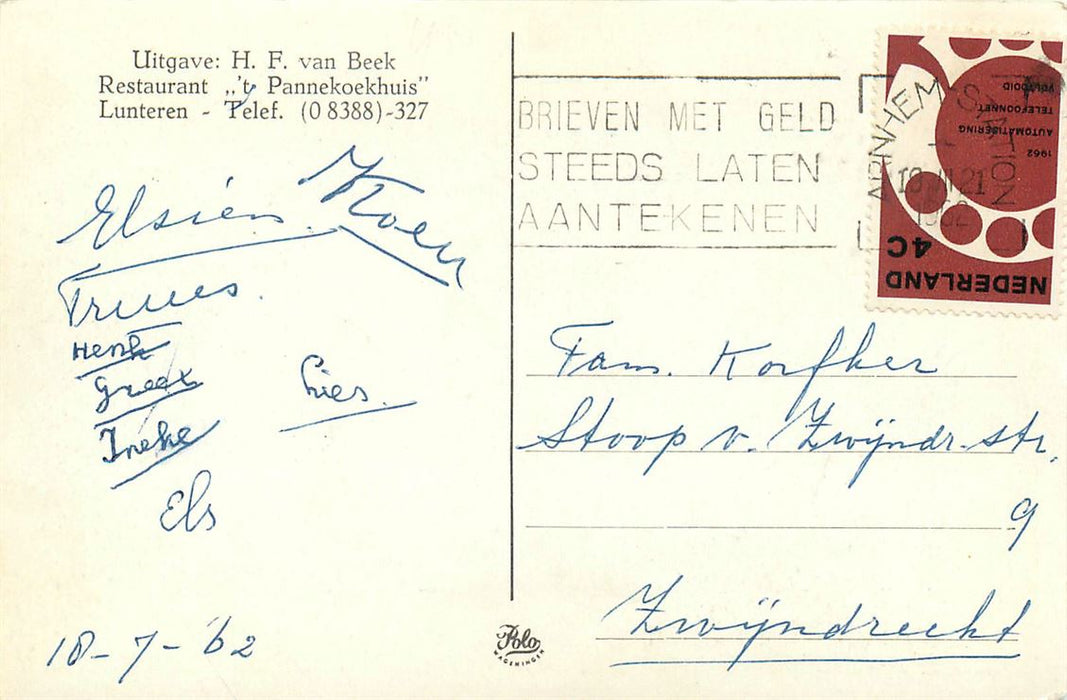 Uitgave: H. F. van Beek
Restaurant „'t Pannekoekhuis”
Lunteren - Telef. (0 8388)-327
Elsien. Koen
Truus.
Henk
Greet
Lies.
Ineke
Els
18-7-'62
BRIEVEN MET GELD
STEEDS LATEN
AANTEKENEN
ARNHEM-STATION
1962
VOLTOOID
TELEFOONNET
AUTOMATISERING
1962
4C
NEDERLAND
Fam. Korfker
Stoop v. Zwijndr. str.
9
Zwijndrecht
Polo
WAGENINGEN